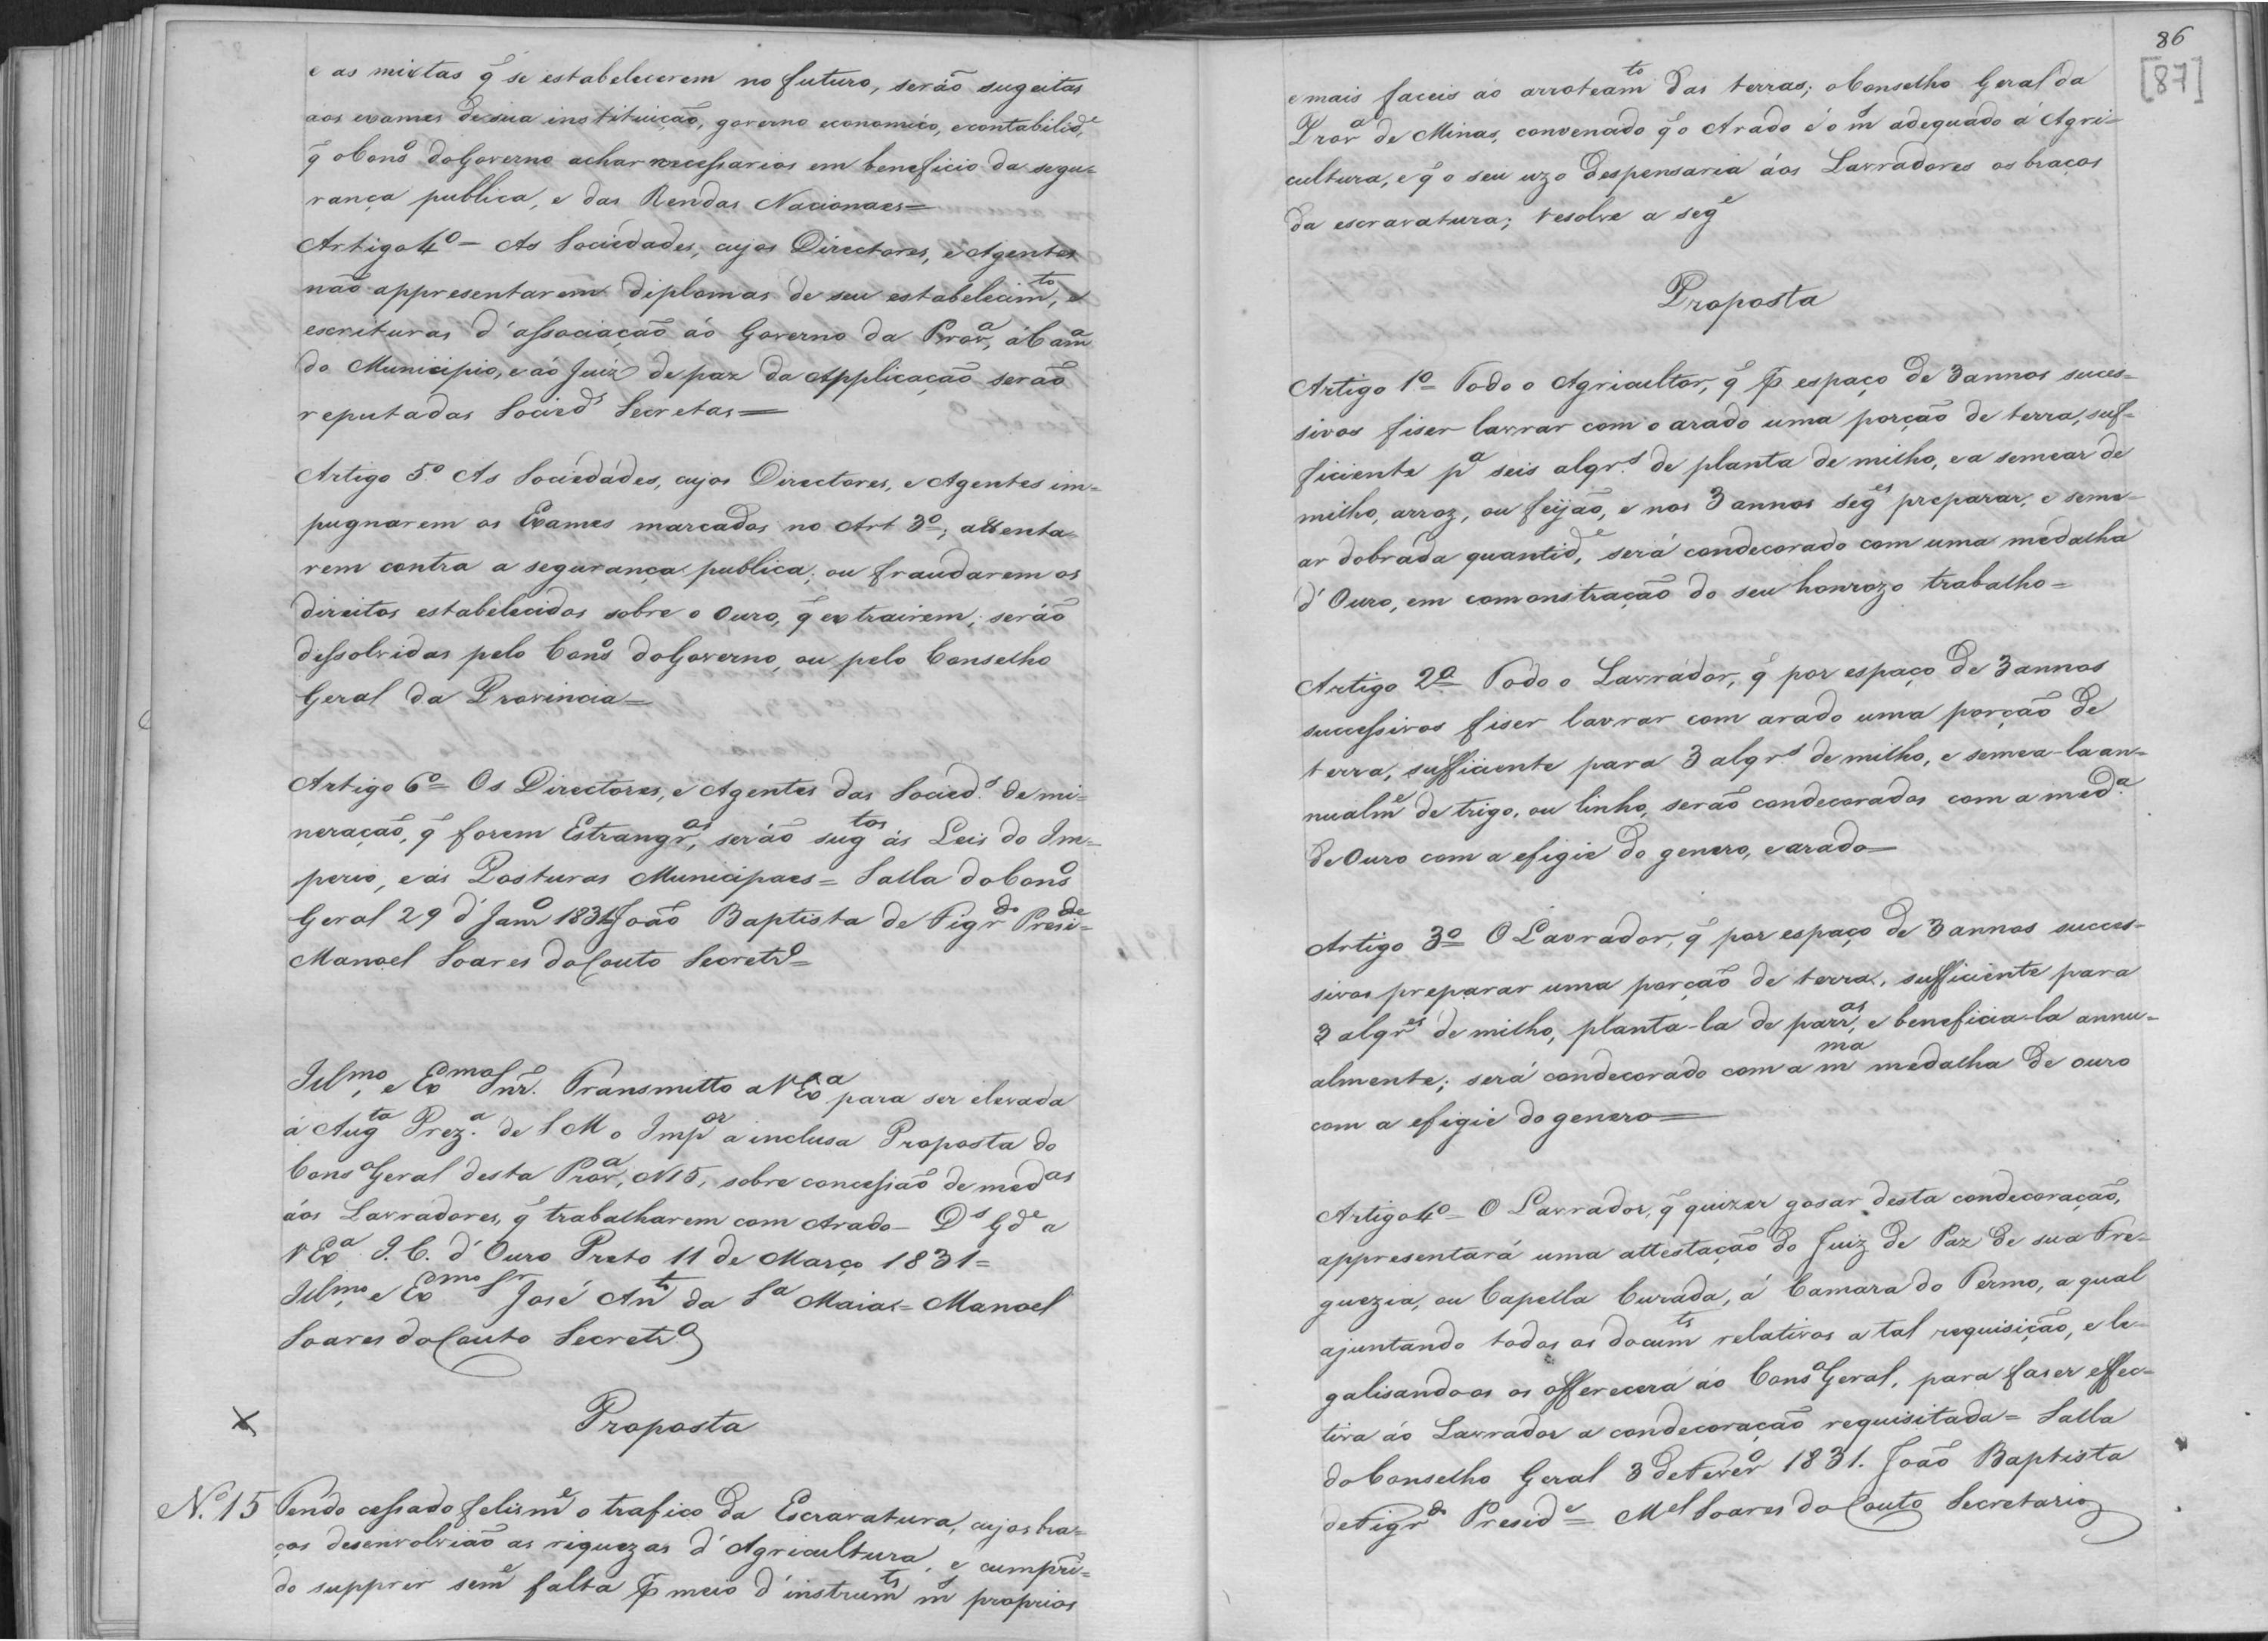 e as mixtas q̃ se estabelecerem no futuro, serão sugeitas
aos exames de sua instituição, governo economico, e contabilid.e
q̃ o Conso do Governo achar necessarios em beneficio da segu=
rança publica, e das Rendas Nacionaes=
Artigo 4o= As Sociedades, cujos Directores, e Agentes
não appresentarem diplomas de seu estabelecimto, e
escrituras d'associação áo Governo da Prova, á Cama
do Municipio, e áo Juiz de paz da Applicação serão
reputadas Socieds Secretas=
Artigo 5o As Sociedádes, cujos Directores, e Agentes im=
pugnarem os Exames marcados no Art 3o; attenta=
rem contra a segurança publica; ou fraudarem os
direitos estabelecidos sobre o Ouro, q̃ extrairem; serão
dessolvidas pelo Conso do Governo, ou pelo Conselho
Geral da Provincia=
Artigo 6o= Os Directores, e Agentes das Socied.s de mi=
neração, q̃ forem Estrangros, serão sugtos ás Leis do Im=
perio, e ás Posturas Municipaes= Salla do Conso
Geral 29 d'Janro 1831 João Baptista de Figrdo Preside=
Manoel Soares do Couto Secretro=
Illmo, e Exmo Snr. Transmitto a V Exa para ser elevada
á Augta Prez.a de S M o Impor a inclusa Proposta do
Conso Geral desta Prova, N15, sobre concessão de medas
áos Lavradores, q̃ trabalharem com Arado= Ds Gde a
V Exa I. C. d'Ouro Preto 11 de Março 1831=
Illmo e Exmo Sr José Anto da Sa Maia= Manoel
Soares do Couto Secretro
Proposta
No 15 Tendo cessado felisme o trafico da Escravatura, cujos bra=
ços desenvolvião as riquezas d'Agricultura, e cumprin=
do supprir seme falta p̱ meio d'instrumts ms proprios
86
[87]
e mais faceis áo arroteamto das terras; o Conselho Geral da
Prova de Minas, convenado q̃ o Arado é o ms adequado á Agri=
cultura, e q̃ o seu uzo despensaria áos Lavradores os braços
da escravatura; resolve a sege
Proposta
Artigo 1o= Todo o Agricultor, q̃ p̱ espaço de 3 annos suces=
sivos fiser lavrar com o arado uma porção de terra, suf=
ficiente pa seis alqrs de planta de milho, e a semear de
milho, arroz, ou feijão, e nos 3 annos seges preparar, e seme=
ar dobrada quantid.e, será condecorado com uma medalha
d'Ouro, em comonstração do seu honrozo trabalho=
Artigo 2o= Todo o Lavrádor, q̃ por espaço de 3 annos
successivos fiser lavrar com arado uma porção de
terra, sufficiente para 3 alqrs de milho, e semea-la an=
nualme de trigo, ou linho, serão condecorados com a med.a
de Ouro com a efigie do genero, e arado=
Artigo 3o= O Lavrador, q̃ por espaço de 3 annos succes=
sivos preparar uma porção de terra, sufficiente para
3 alqres de milho, planta-la de parras, e beneficia-la annu=
almente; será condecorado com a mma medalha de ouro
com a efigie do genero=
Artigo 4o= O Lavrador, q̃ quizer gosar desta condecoração,
appresentará uma attestação do Juiz de Paz de sua Fre=
guezia, ou Capella Curada, á Camara do Termo, a qual
ajuntando todos os documts relativos a tal requisição, e le=
galisando-os os offerecerá áo Conso Geral, para faser effec=
tiva áo Lavrador a condecoração requisitada= Salla
do Conselho Geral 3 de Fevero 1831. João Baptista
de Figrdo Preside= Mel Soares do Couto Secretario